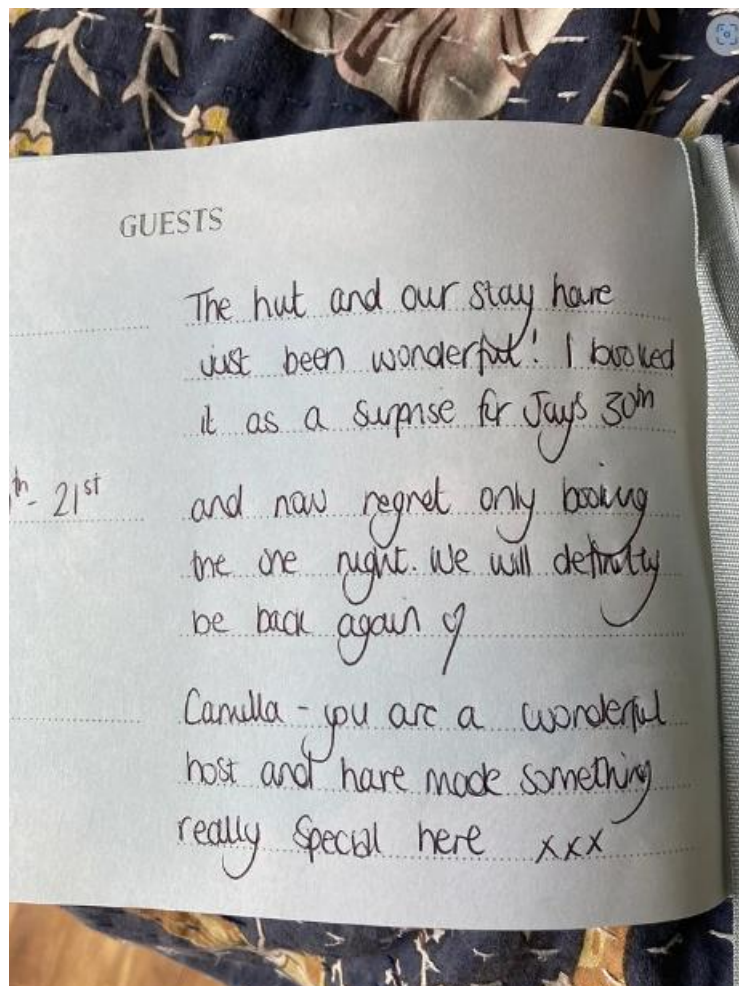 GUESTS
The hut and our stay have
just been wonderful! I booked
it as a surprise for Jay's 30th
th - 21st
and now regret only booking
the one night. We will definitly
be back again ♡
Camilla - you are a wonderful
host and have made something
really special here xxx